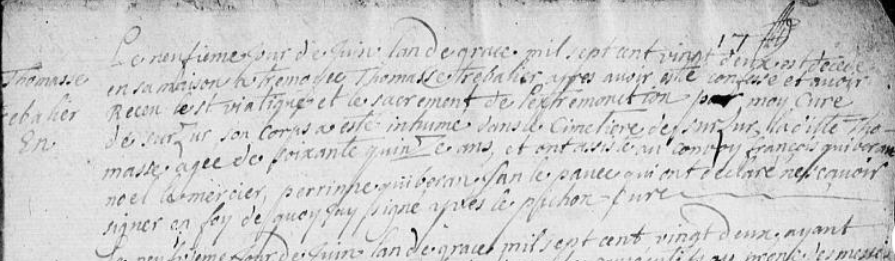 17
Le neufieme jour de Juin lan de grace mil sept cent vingt deux est decede
Thomasse
en sa maison a Thomasse Trebalier apres avoir esté confessé et avoir
Trebalier
Receu le st viatique et le sacrement de l'extremonction par moy Cure
En
de surzur son corps a esté inhumé dans le Cimetiere de surzur, laditte Tho
masse agee de soixante quinze ans, et ont assisté au convoy françois quiboran
noel le mercier, perrinne quiboran Jan le qui ont declaré ne sçavoir
signer en foy de quoy Jay signé apres le Cure
Le neufieme Jour de Juin lan de grace mil sept cent vingt deux, ayant